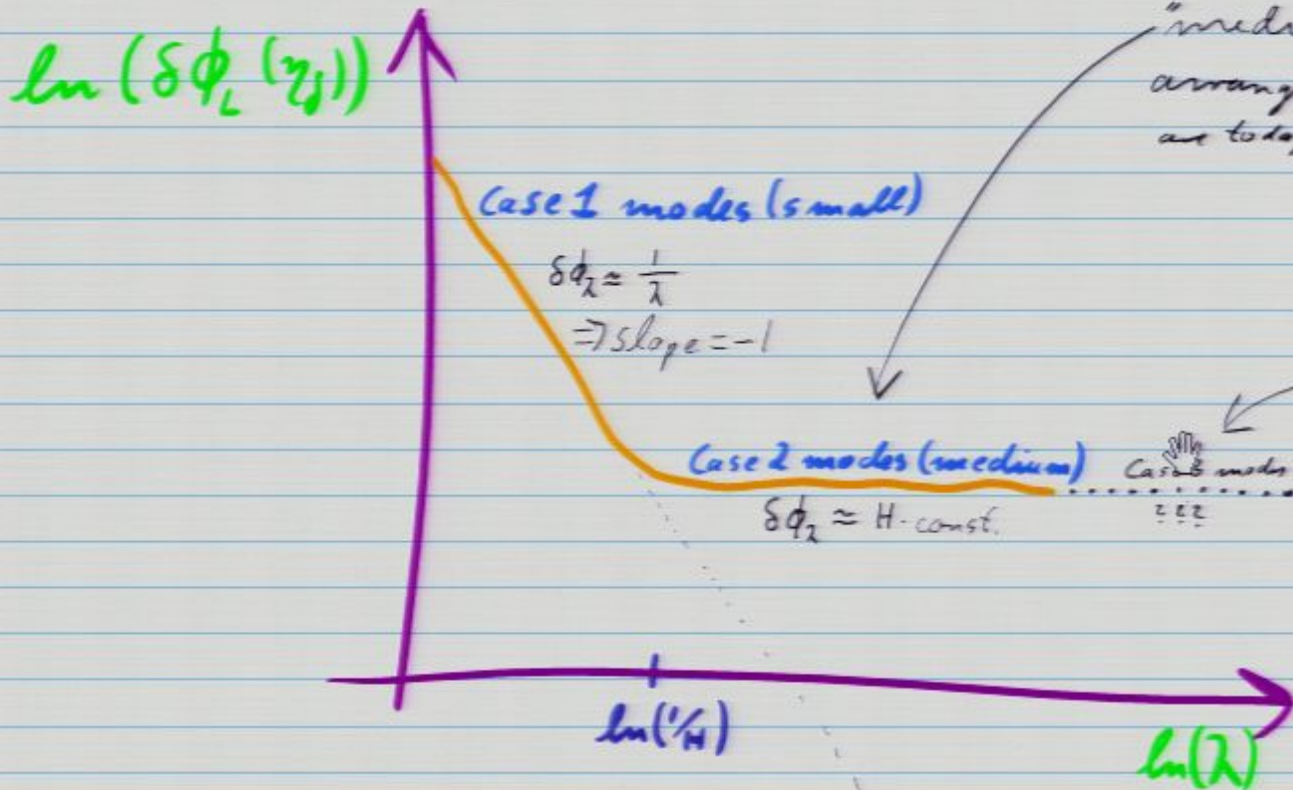 ln (δϕ_L (η_f))
"medi
arrang
are today
Case 1 modes (small)
δϕ_λ ≈ 1/λ
⇒ slope = -1
Case 2 modes (medium)
δϕ_λ ≈ H·const.
Case 3 modes
???
ln(1/H)
ln(λ)